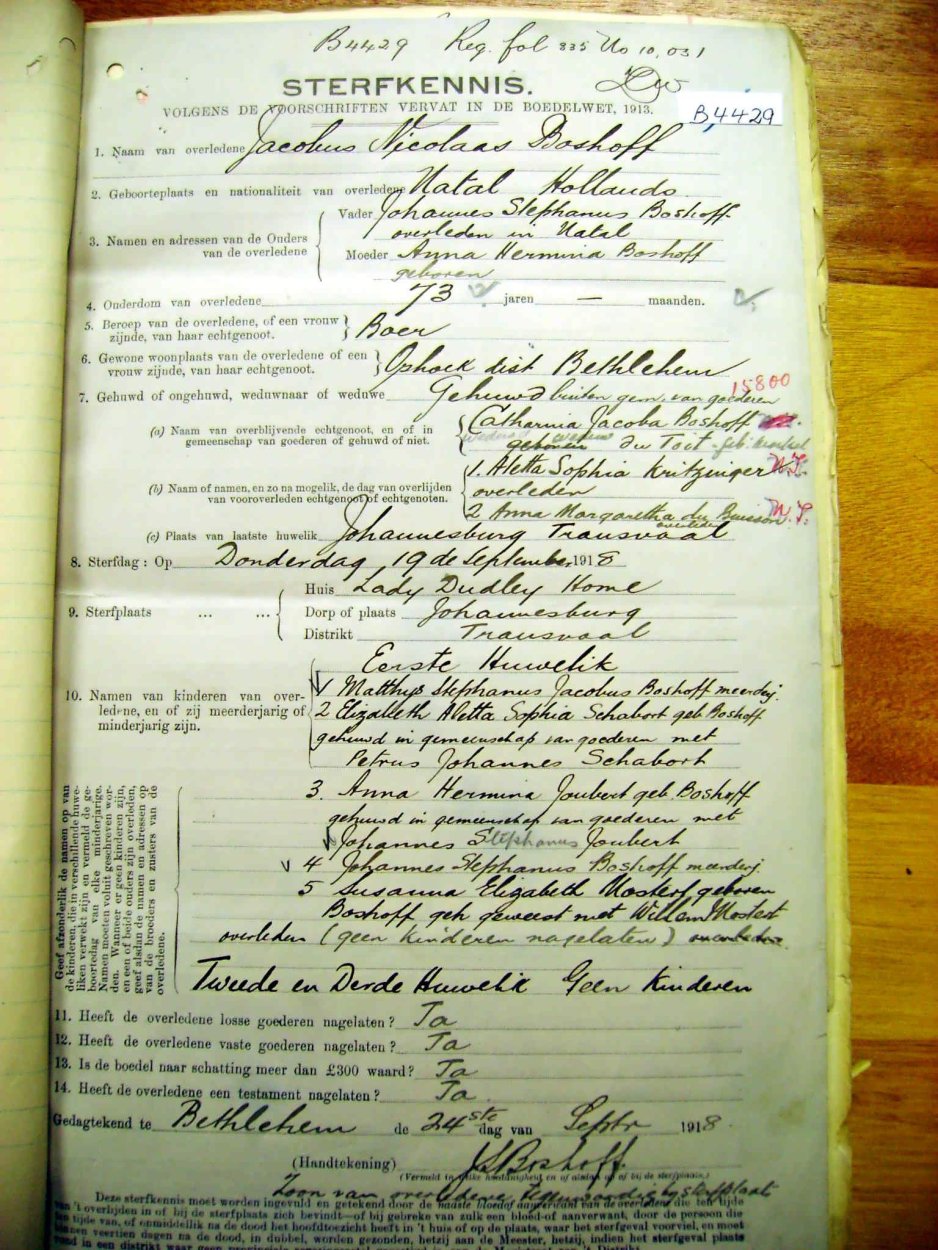 B4429 Reg. fol 835 No 10,031
STERFKENNIS.
VOLGENS DE VOORSCHRIFTEN VERVAT IN DE BOEDELWET, 1913.
B4429
1. Naam van overledene Jacobus Nicolaas Boshoff
2. Geboorteplaats en nationaliteit van overledene Natal Hollands
3. Namen en adressen van de Ouders van de overledene
Vader Johannes Stephanus Boshoff
overleden in Natal
Moeder Anna Hermina Boshoff
geboren
4. Ouderdom van overledene 73 jaren — maanden.
5. Beroep van de overledene, of een vrouw
zijnde, van haar echtgenoot. Boer
6. Gewone woonplaats van de overledene of een
vrouw zijnde, van haar echtgenoot. Ophoek dist Bethlehem
15800
7. Gehuwd of ongehuwd, weduwnaar of weduwe Gehuwd buiten gem. van goederen
(a) Naam van overblijvende echtgenoot, en of in
gemeenschap van goederen of gehuwd of niet.
Catharina Jacoba Boshoff
geboren du Toit
(b) Naam of namen, en zo na mogelik, de dag van overlijden
van vooroverleden echtgenoot of echtgenoten.
1. Aletta Sophia Kritzinger
overleden
2 Anna Margaretha du Buisson
overleden
(c) Plaats van laatste huwelik Johannesburg Transvaal
8. Sterfdag: Op Donderdag 19 de September 1918
9. Sterfplaats ... ...
Huis Lady Dudley Home
Dorp of plaats Johannesburg
Distrikt Transvaal
10. Namen van kinderen van over-
ledene, en of zij meerderjarig of
minderjarig zijn.
Eerste Huwelik
1 Matthys Stephanus Jacobus Boshoff meerderj.
2 Elizabeth Aletta Sophia Schabort geb Boshoff
gehuwd in gemeenschap van goederen met
Petrus Johannes Schabort
Geef afzonderlik de namen op van
de kinderen, die in verschillende huwe-
liken verwekt zijn en vermeld de ge-
boortedag van elke minderjarige.
Namen moeten voluit geschreven wor-
den. Wanneer er geen kinderen zijn,
en een of beide ouders zijn overleden,
geef alsdan de namen en adressen op
van de broeders en zusters van de
overledene.
3. Anna Hermina Joubert geb Boshoff
gehuwd in gemeenschap van goederen met
Johannes Stephanus Joubert
4 Johannes Stephanus Boshoff meerderj
5 Susanna Elizabeth Mostert geboren
Boshoff geh geweest met Willem Mostert
overleden (geen kinderen nagelaten)
Tweede en Derde Huwelik Geen Kinderen
11. Heeft de overledene losse goederen nagelaten? Ja
12. Heeft de overledene vaste goederen nagelaten? Ja
13. Is de boedel naar schatting meer dan £300 waard? Ja
14. Heeft de overledene een testament nagelaten? Ja
Gedagtekend te Bethlehem de 24ste dag van Septr 1918
(Handtekening) JS Boshoff.
Zoon van overledene tegenwoordig by sterfplaats
Deze sterfkennis moet worden ingevuld en getekend door de naaste bloed of aanverwant van de overledene die ten tijde
van 't overlijden in of bij de sterfplaats zich bevindt—of bij gebreke van zulk een bloed-of aanverwant, door de persoon die
ten tijde van, of onmiddellik na de dood het hoofdtoezicht heeft in 't huis of op de plaats, waar het sterfgeval voorviel, en moet
binnen veertien dagen na de dood, in dubbel, worden gezonden, hetzij aan de Meester, hetzij, indien het sterfgeval plaats